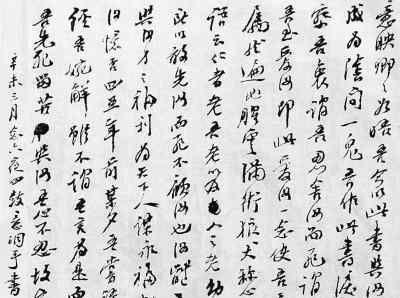 意映卿卿如晤吾今以此書與汝
成為陰間一鬼吾作此書淚
察吾衷謂吾忍舍汝而死謂
吾至愛汝即此愛汝一念使吾
屬然遍地腥雲滿街狼犬稱心
語云仁者老吾老以及人之老幼
所以敢先汝而死不顧汝也汝體
與汝身之福利為天下人謀永福
汝憶否四五年前某夕吾嘗
經吾婉解雖不謂吾言為是而
吾先死留苦與汝吾心不忍故
辛未三月念六夜四鼓意洞手書